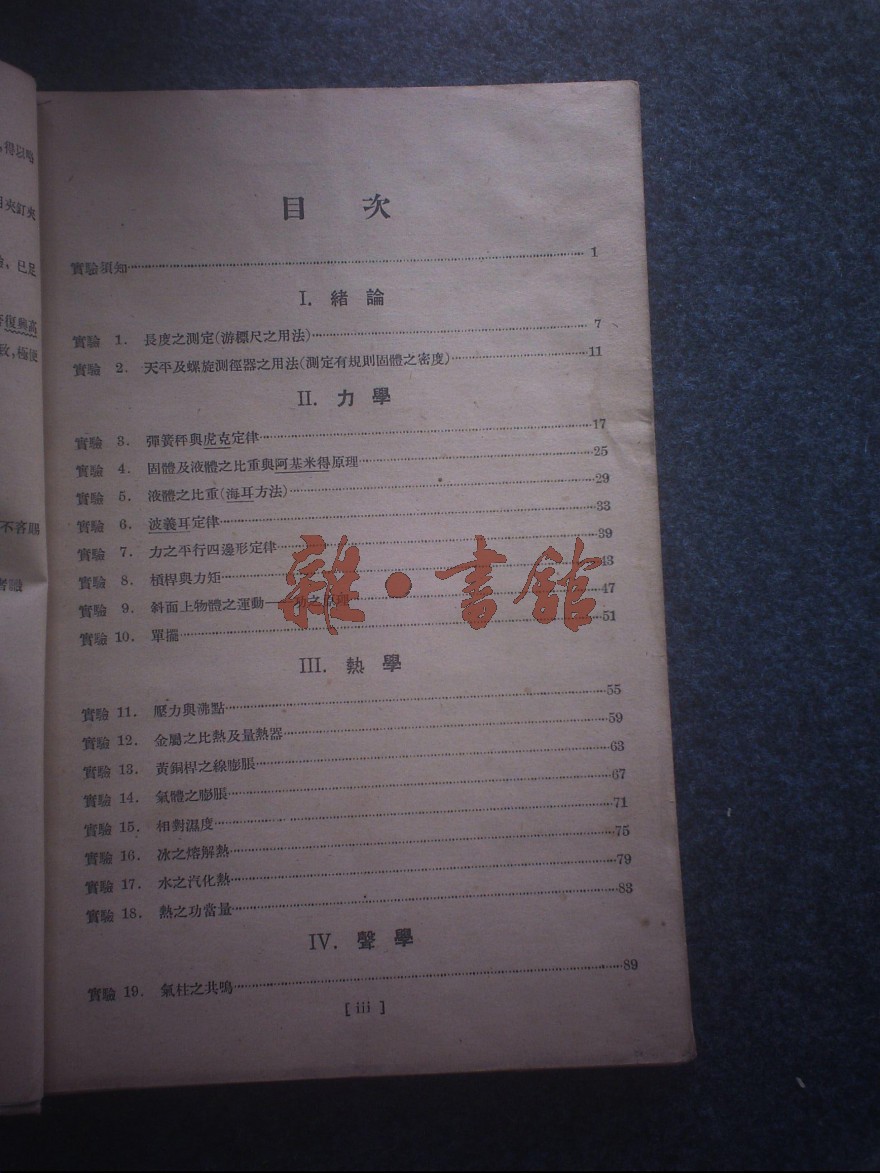 得以略
夾釘夾
已足
復興高
極便
不吝賜
者識
目 次
實驗須知 1
I. 緒論
實驗 1. 長度之測定(游標尺之用法) 7
實驗 2. 天平及螺旋測徑器之用法(測定有規則固體之密度) 11
II. 力學
實驗 3. 彈簧秤與虎克定律 17
實驗 4. 固體及液體之比重與阿基米得原理 25
實驗 5. 液體之比重(海耳方法) 29
實驗 6. 波義耳定律 33
實驗 7. 力之平行四邊形定律 39
實驗 8. 槓桿與力矩 43
實驗 9. 斜面上物體之運動——功之原理 47
實驗 10. 單擺 51
雜·書館
III. 熱學
實驗 11. 壓力與沸點 55
實驗 12. 金屬之比熱及量熱器 59
實驗 13. 黃銅桿之線膨脹 63
實驗 14. 氣體之膨脹 67
實驗 15. 相對濕度 71
實驗 16. 冰之熔解熱 75
實驗 17. 水之汽化熱 79
實驗 18. 熱之功當量 83
IV. 聲學
實驗 19. 氣柱之共鳴 89
[ iii ]